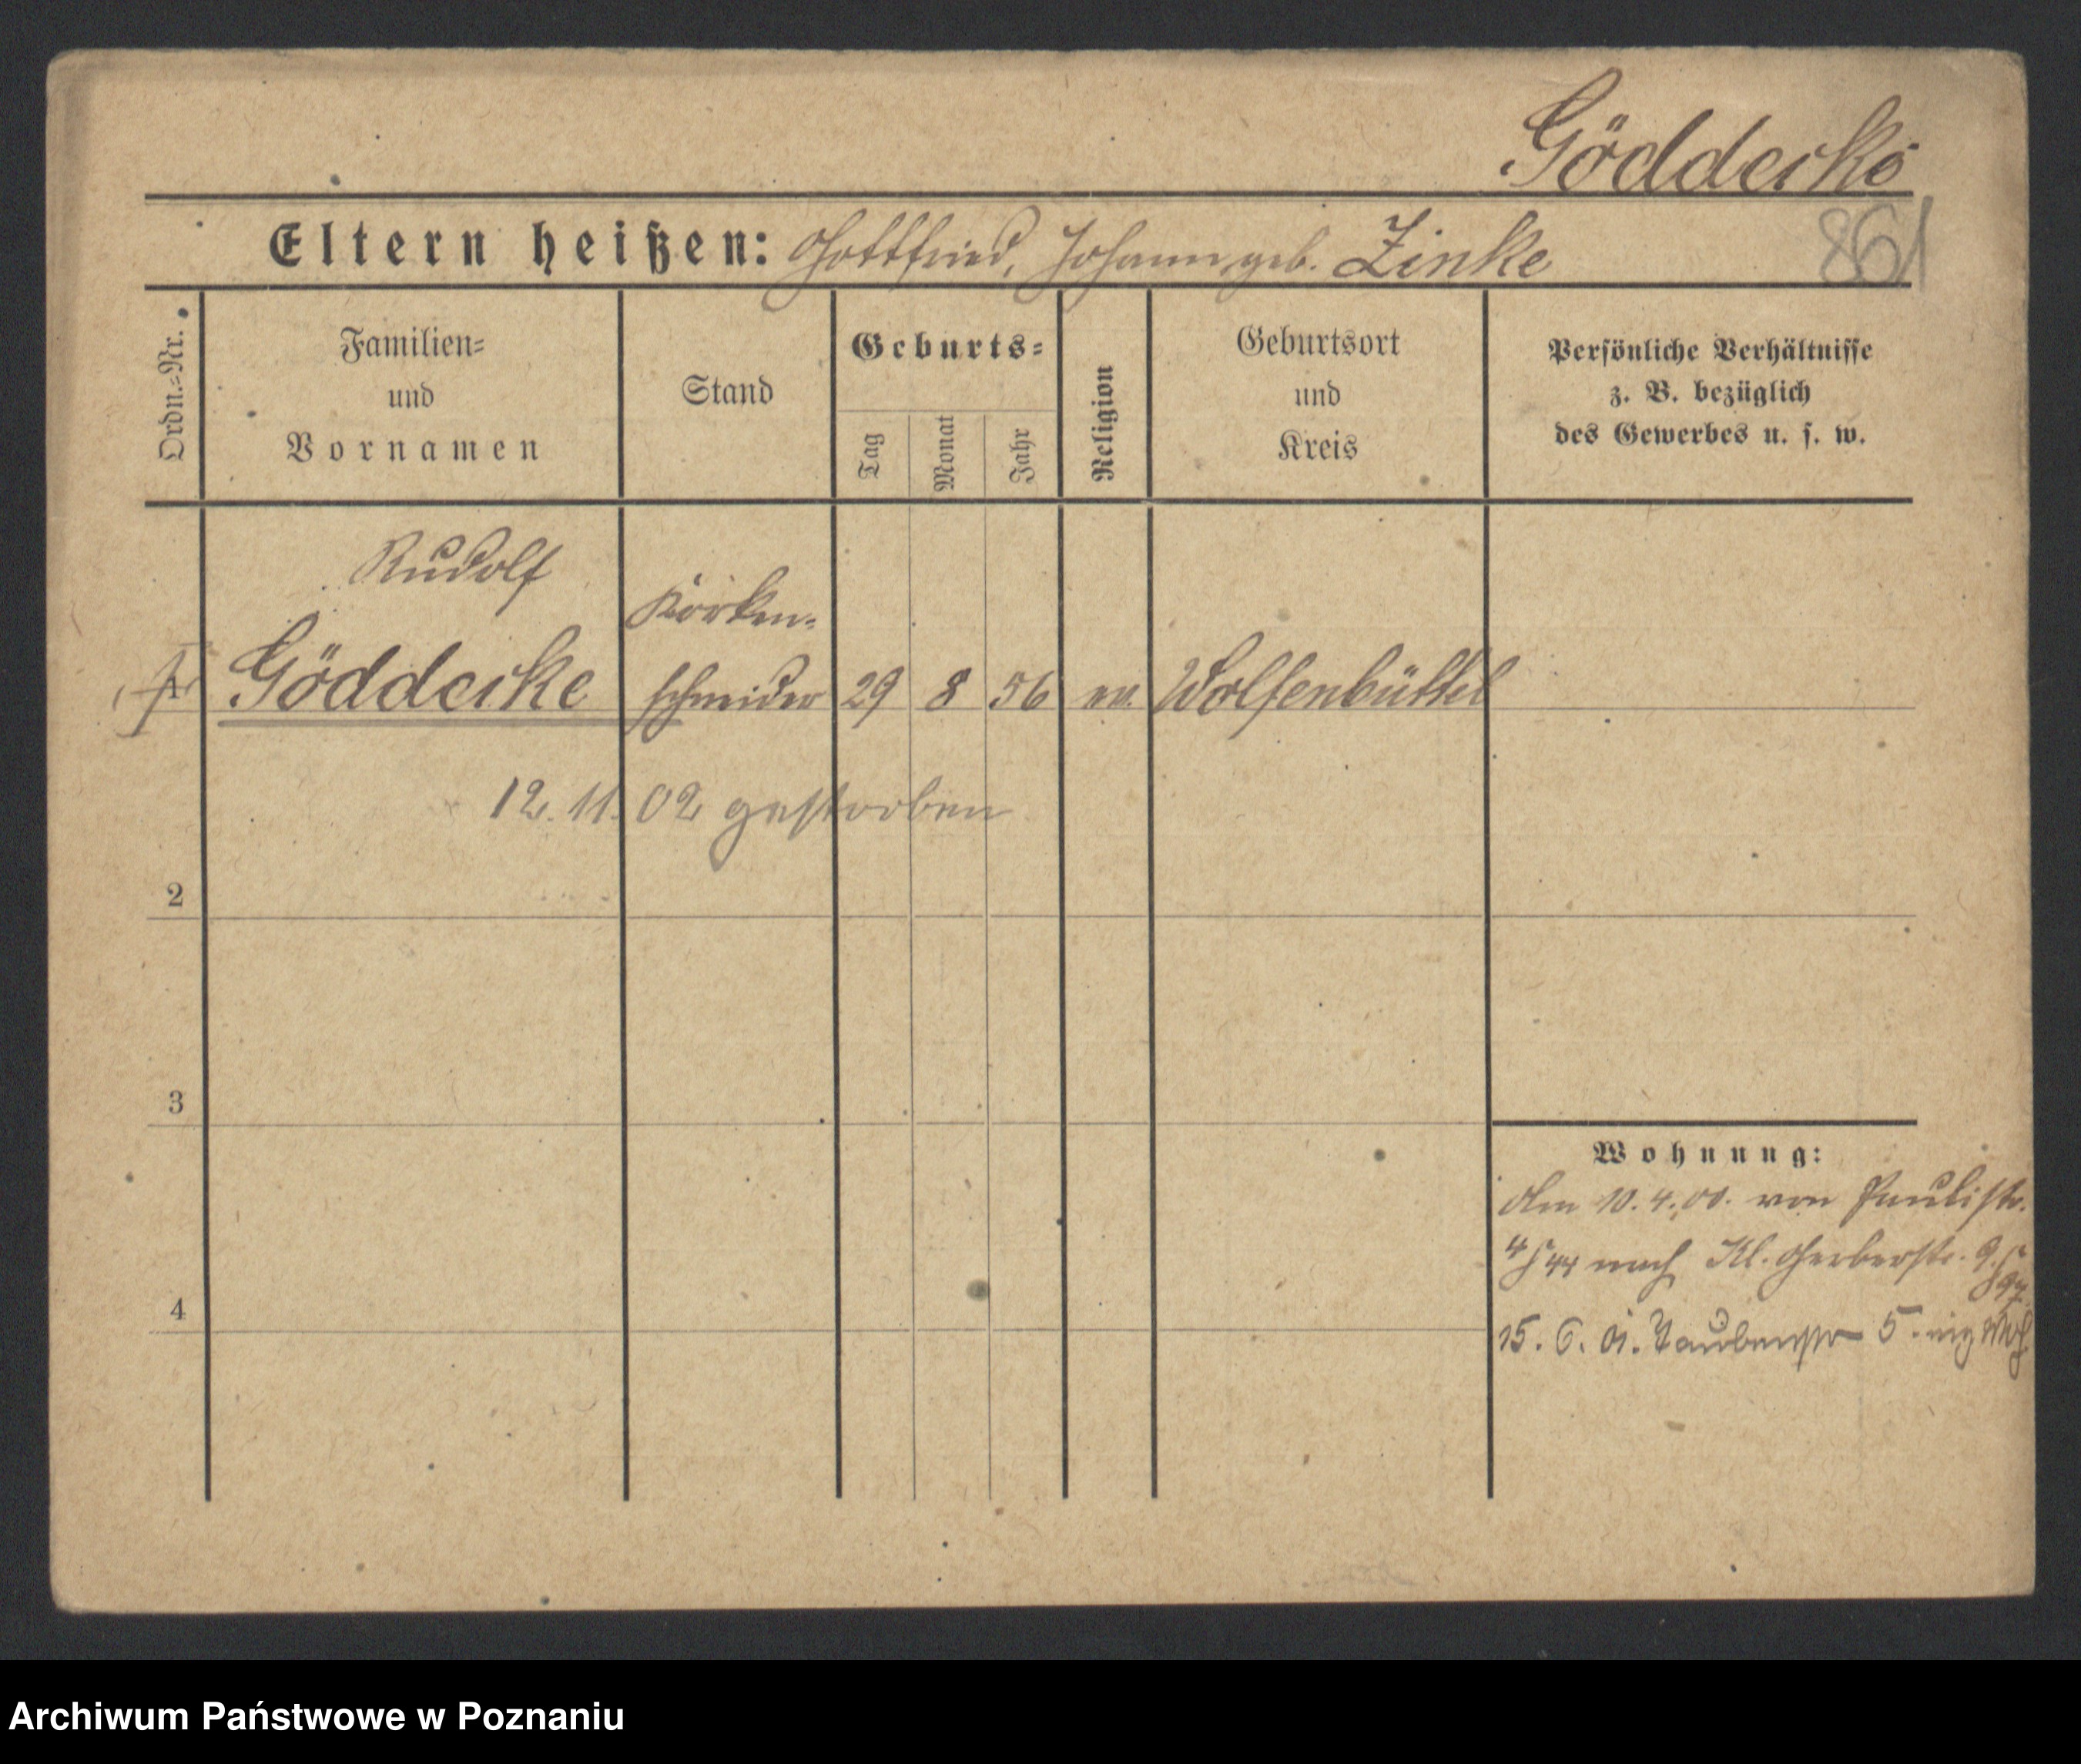 Göddecke
Eltern heißen: Gottfried, Johann geb. Zinke
861
Ordn.=Nr.
Familien=
und
Vornamen
Stand
Geburts=
Tag
Monat
Jahr
Religion
Geburtsort
und
Kreis
Persönliche Verhältnisse
z. B. bezüglich
des Gewerbes u. s. w.
Rudolf
Korken=
1 Göddecke schneider 29 8 56 ev. Wolfenbüttel
12. 11. 02 gestorben
2
3
Wohnung:
Am 10. 4. 00. von Paulistr.
4/44 nach Kl. Gerberstr. 9/97
4
15. 6. 01. Taubenstr 5.
Archiwum Państwowe w Poznaniu